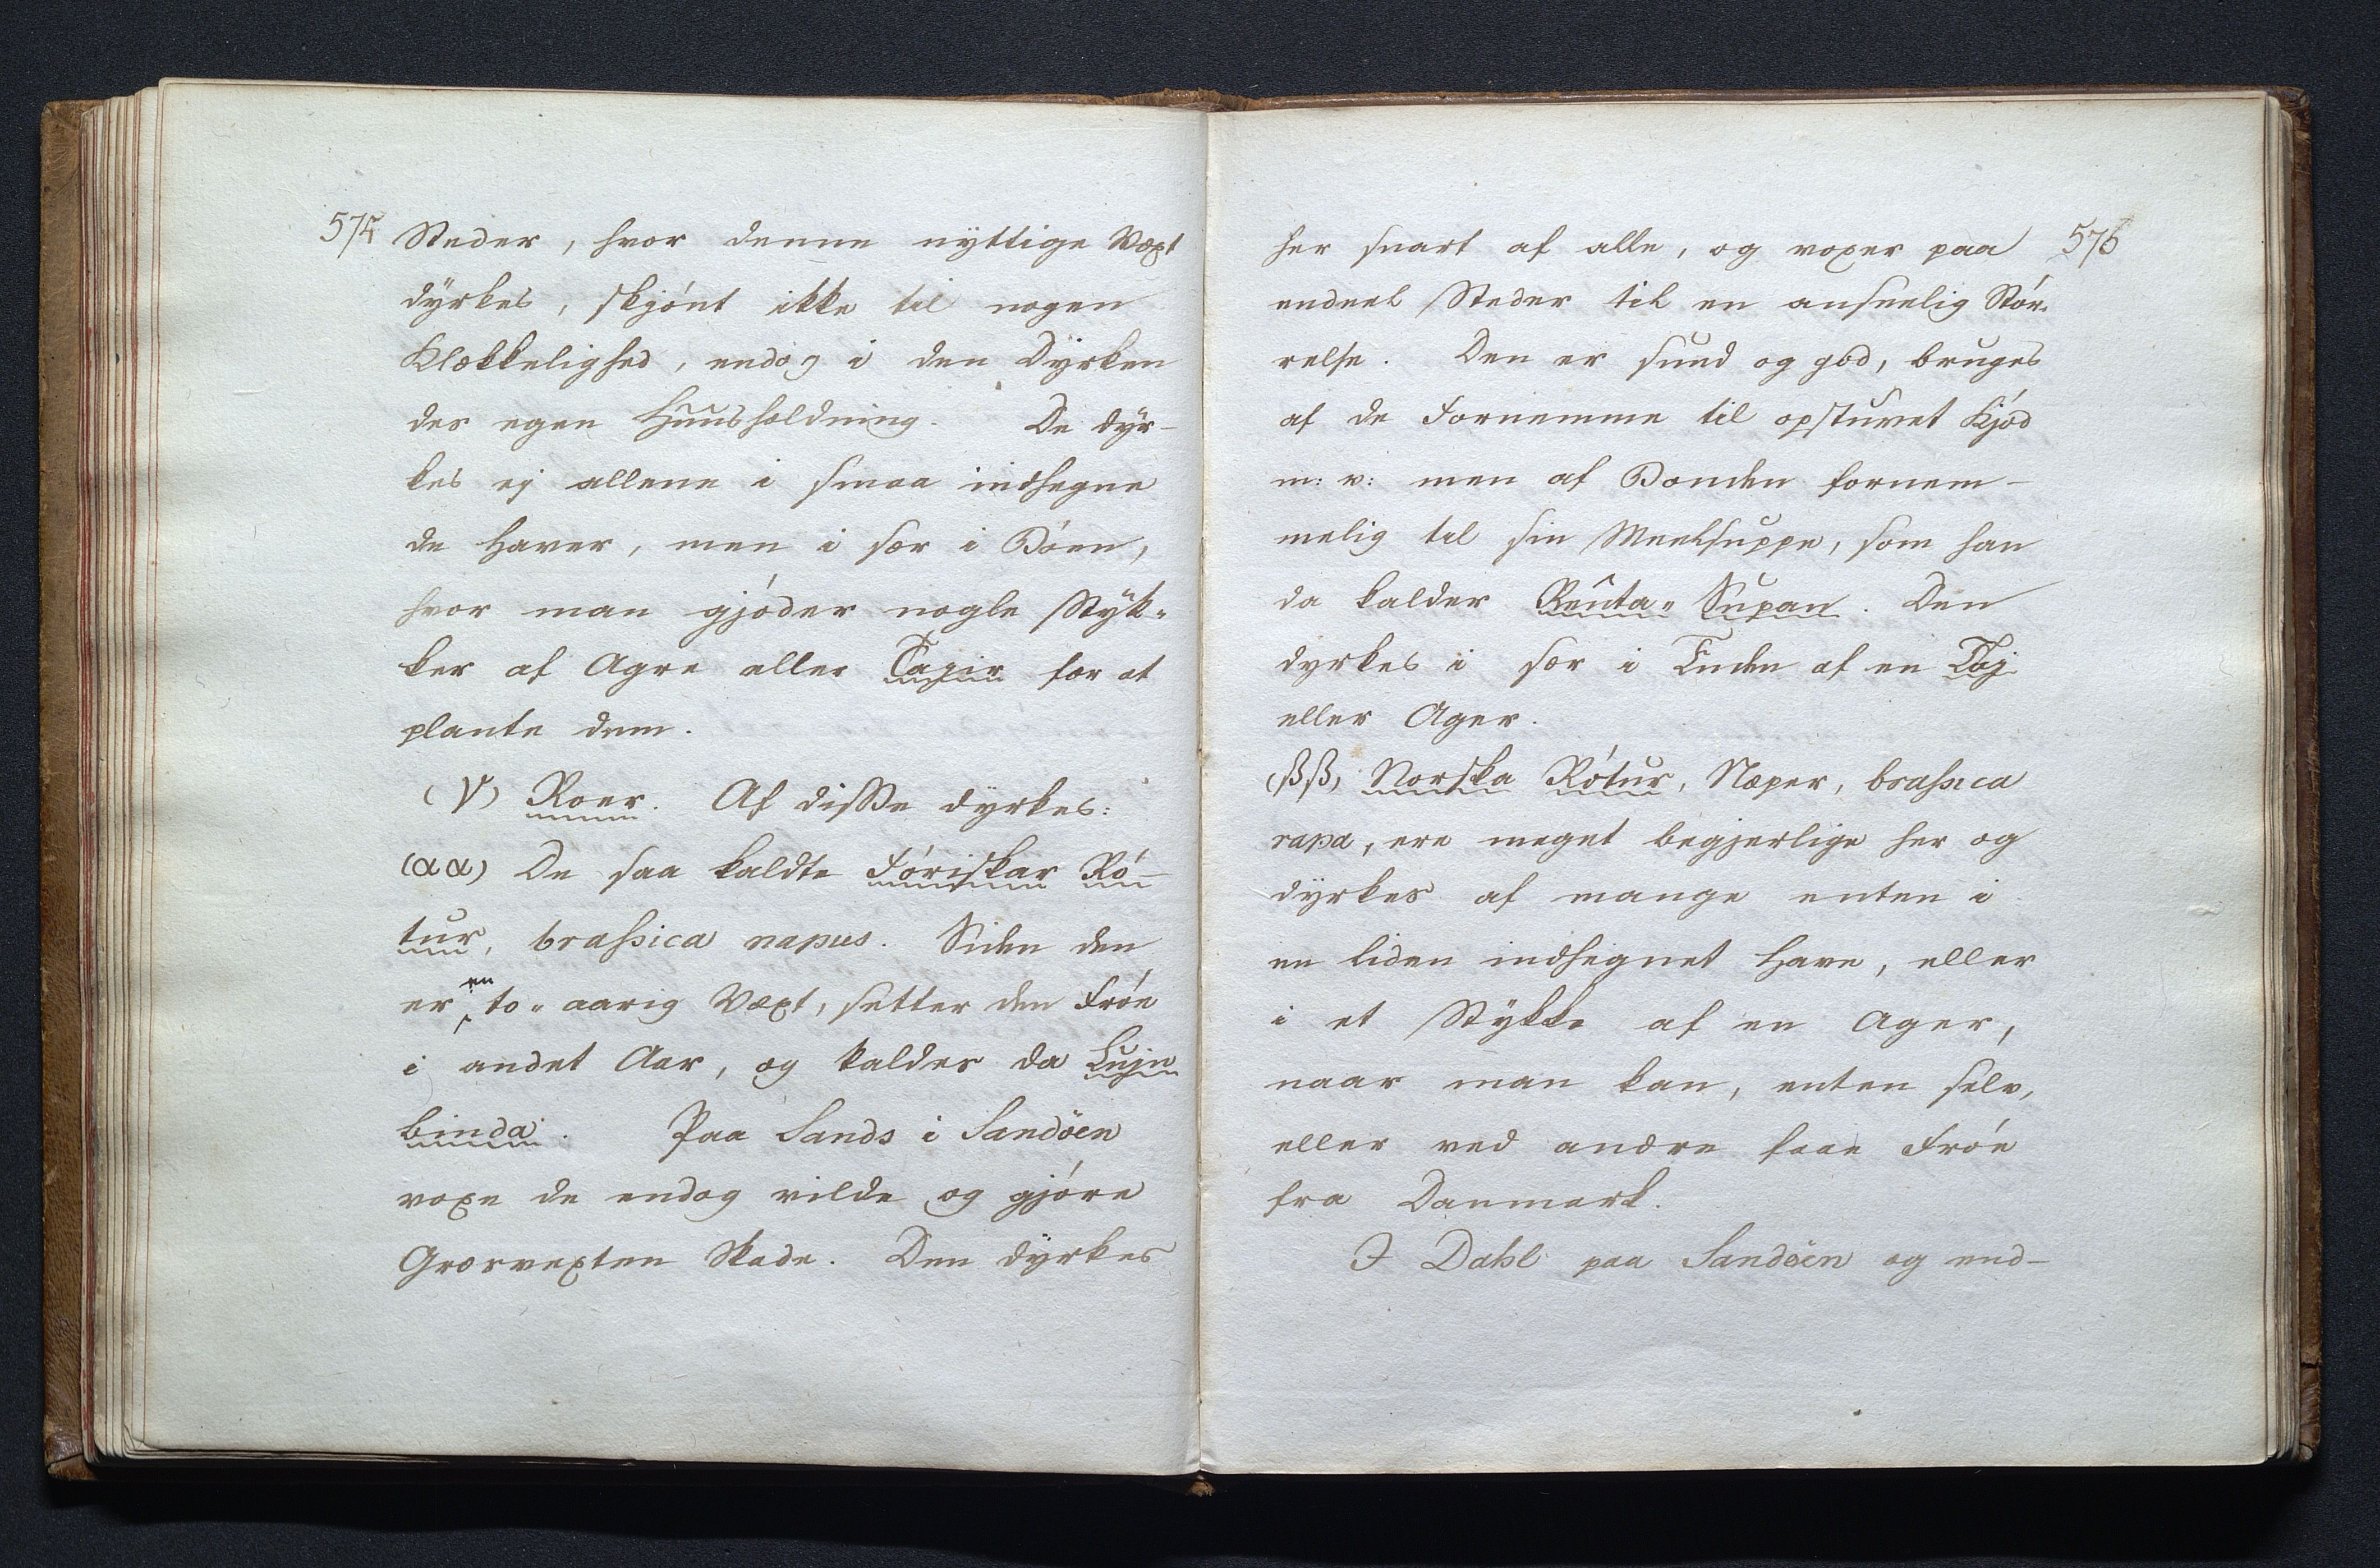 574
Steder, hvor denne nÿttige Væxt
dÿrkes, skjónt ikke til nogen
Klækkelighed, endog i den Dÿrken
des egen Huusholdning. De dÿr-
kes ej allene i smaa indhegne
de Haver, men i sær i Bóen,
hvor man gjóder nogle Stÿk-
ker af Agre eller Tajir for at
plante dem.
(γ) Roer. Af disse dÿrkes:
(αα) De saa kaldte Fóriskar Ró-
tur, brassica napus. Siden den
er en to-aarig Væxt, setter den Fróe
i andet Aar, og kaldes da Lujn
binda. Paa Sands i Sandöen
voxe de endog vilde og gjóre
Græsvexten Skade. Den dÿrkes
575
her snart af alle, og voxer paa
endeel Steder til en anseelig Stór-
relse. Den er sund og god, bruges
af de Fornemme til opstuvet Kjód
m: v: men af Bonden fornem-
melig til sin Meelsuppe, som han
da kalder Reûta- Supan. Den
dyrkes i sær i Enden af en Taj
eller Ager.
(ßß) Norska Rótur, Næper, brassica
rapa, ere meget begjerlige her og
dÿrkes af mange enten i
en liden indhegnet Have, eller
i et Stÿkke af en Ager,
naar man kan, enten selv,
eller ved andre faae Fróe
fra Danmark.
I Dahl paa Sandöen og end-